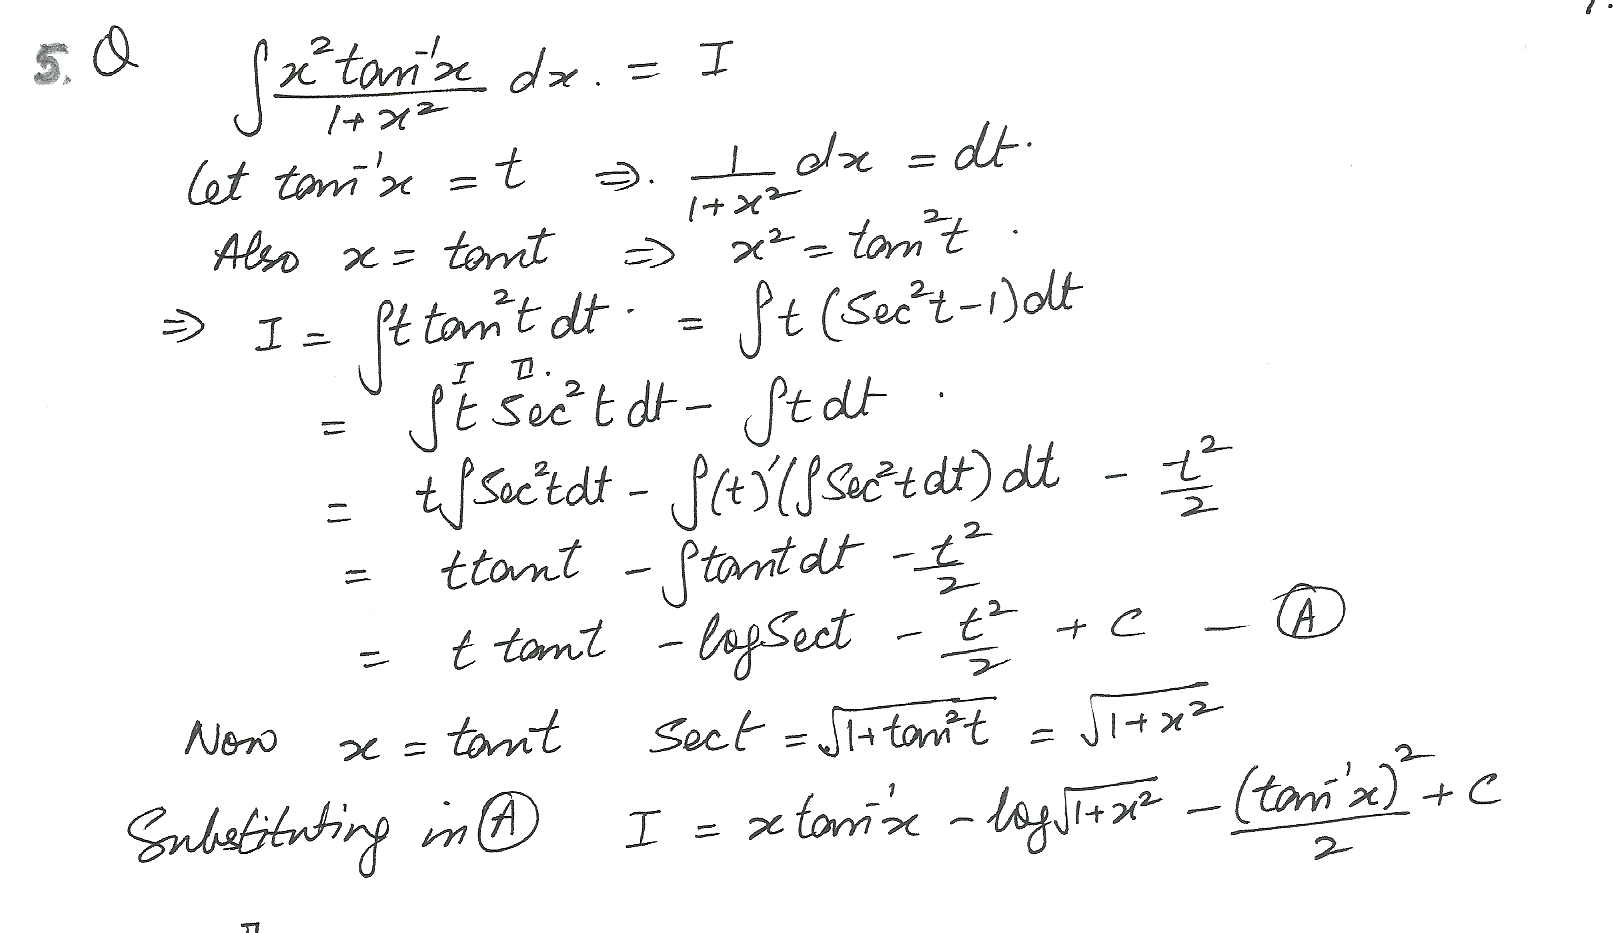 5. Q ∫ x² tan⁻¹x / 1+x² dx. = I
Let tan⁻¹x = t ⇒. 1/1+x² dx = dt.
Also x = tant ⇒ x² = tan²t .
⇒ I = ∫t tan²t dt . = ∫t (Sec²t-1)dt
I II.
= ∫t Sec²t dt - ∫t dt .
= t∫Sec²tdt - ∫(t)'(∫Sec²t dt) dt - t²/2
= ttant - ∫tant dt - t²/2
= t tant - logSect - t²/2 + C - Ⓐ
Now x = tant Sect = √1+tan²t = √1+x²
Substituting in Ⓐ I = x tan⁻¹x - log√1+x² - (tan⁻¹x)²/2 + C
II